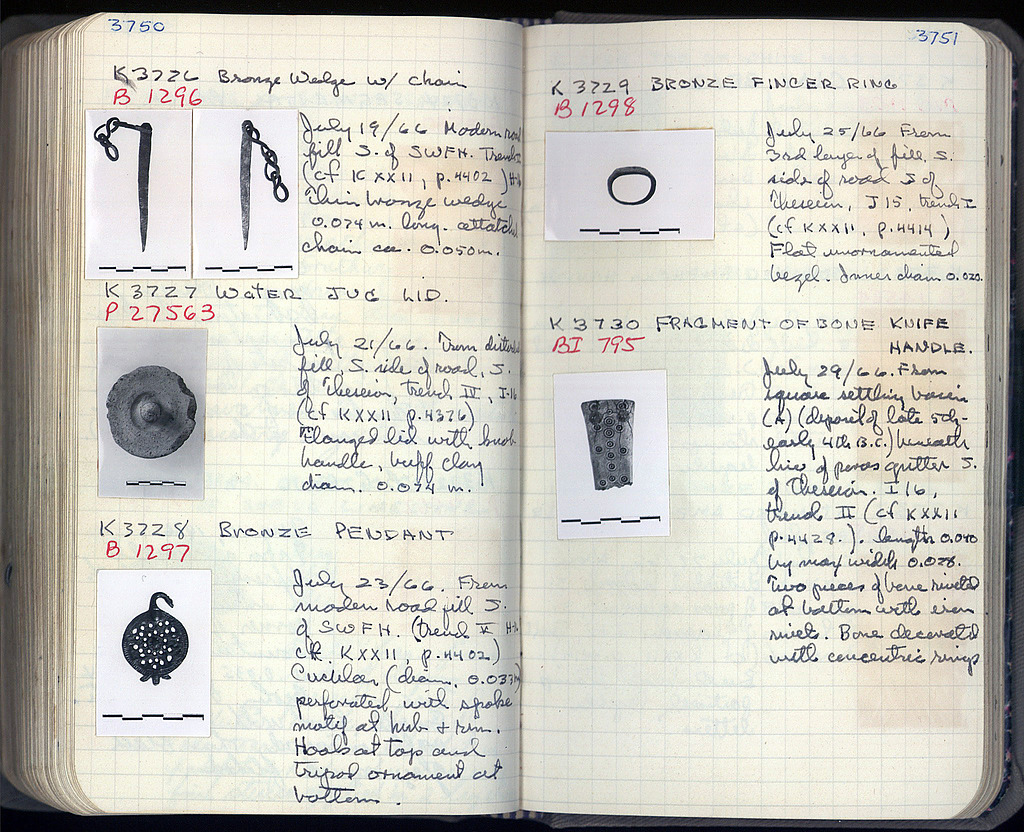 3750
K 3726 Bronze Wedge w/ chain
B 1296
July 19/66 Modern road
fill S. of SWFH. Trench
(cf K XXII, p. 4402)
Thin bronze wedge
0.074 m. long. attatched
chain ca. 0.050m.
K 3727 WATER JUG LID.
P 27563
July 21/66. From disturbed
fill, S. side of road, S.
of Theseion, trench IV, I-16
(cf K XXII p. 4376)
Flanged lid with knob
handle, buff clay
diam. 0.074 m.
K 3728 BRONZE PENDANT
B 1297
July 23/66. From
modern road fill S.
of SWFH. (trench V
cf. K XXII, p. 4402)
Circular (diam. 0.033m)
perforated with spoke
motif at hub + rim.
Hook at top and
tripod ornament at
bottom.
3751
K 3729 BRONZE FINGER RING
B 1298
July 25/66 From
3rd layer of fill, S.
side of road S of
Theseion, J 15, trench I
(cf K XXII, p. 4414)
Flat unornamented
bezel. Inner diam 0.020.
K 3730 FRAGMENT OF BONE KNIFE
HANDLE.
BI 795
July 29/66. From
square settling basin
(A) (deposit of late 5th-
early 4th B.C.) beneath
line of poros gutter S.
of Theseion. I 16,
trench II (cf K XXII
p. 4428.). length 0.040
by max width 0.028.
Two pieces of bone riveted
at bottom with iron
rivets. Bone decorated
with concentric rings